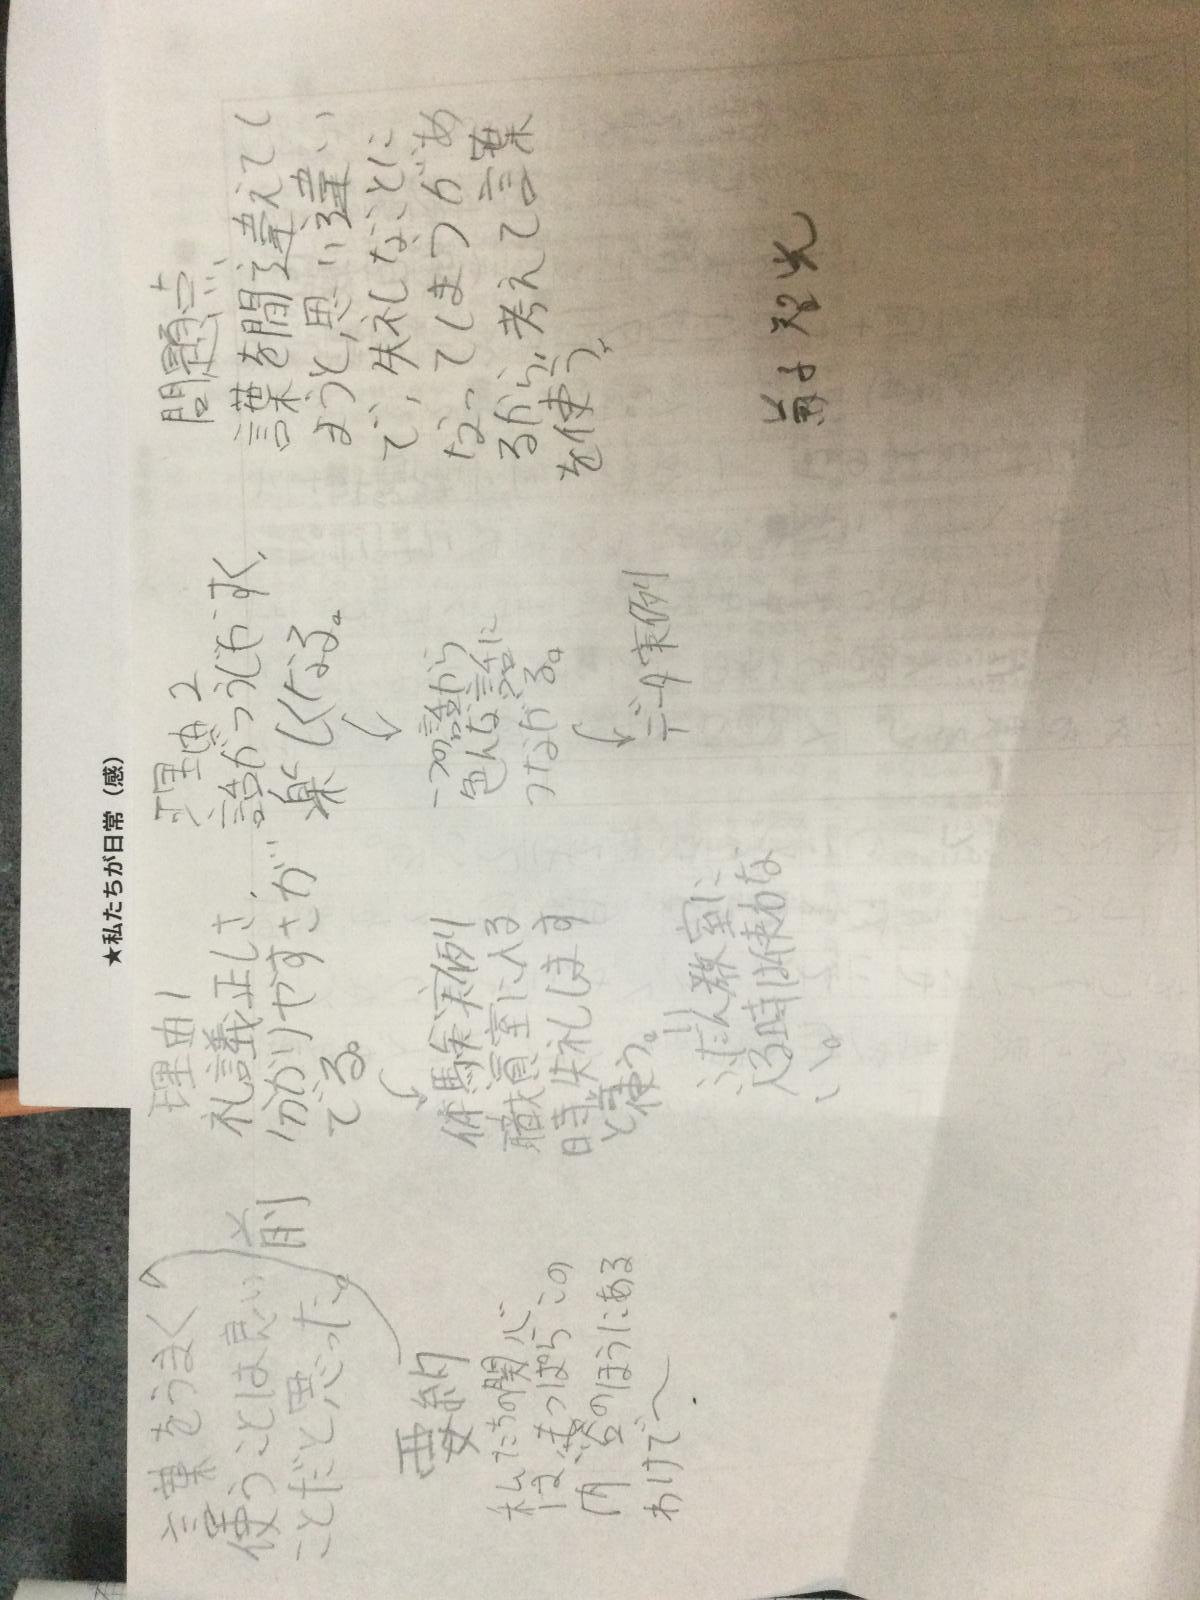 ★私たちが日常（感）
言葉をうまく
使うことは良い
ことだと思った。
前
要約
私たちの関心
は、もっぱらこの
内容のほうにある
わけで〜
理由1
礼議正しさ、
分かりやすさが
でる。
体験実例
職員室に入る
時失礼します
と使う。
ふだん教室に
入る時は使わな
い。
理由2
話がつうじやすく、
楽しくなる。
一つの話から
色んな話に
つながる。
データ実例
問題点
言葉を間違えてし
まうと、思い違い
で、失礼なことに
なってしまうがあ
るから、考えて言葉
を使う。